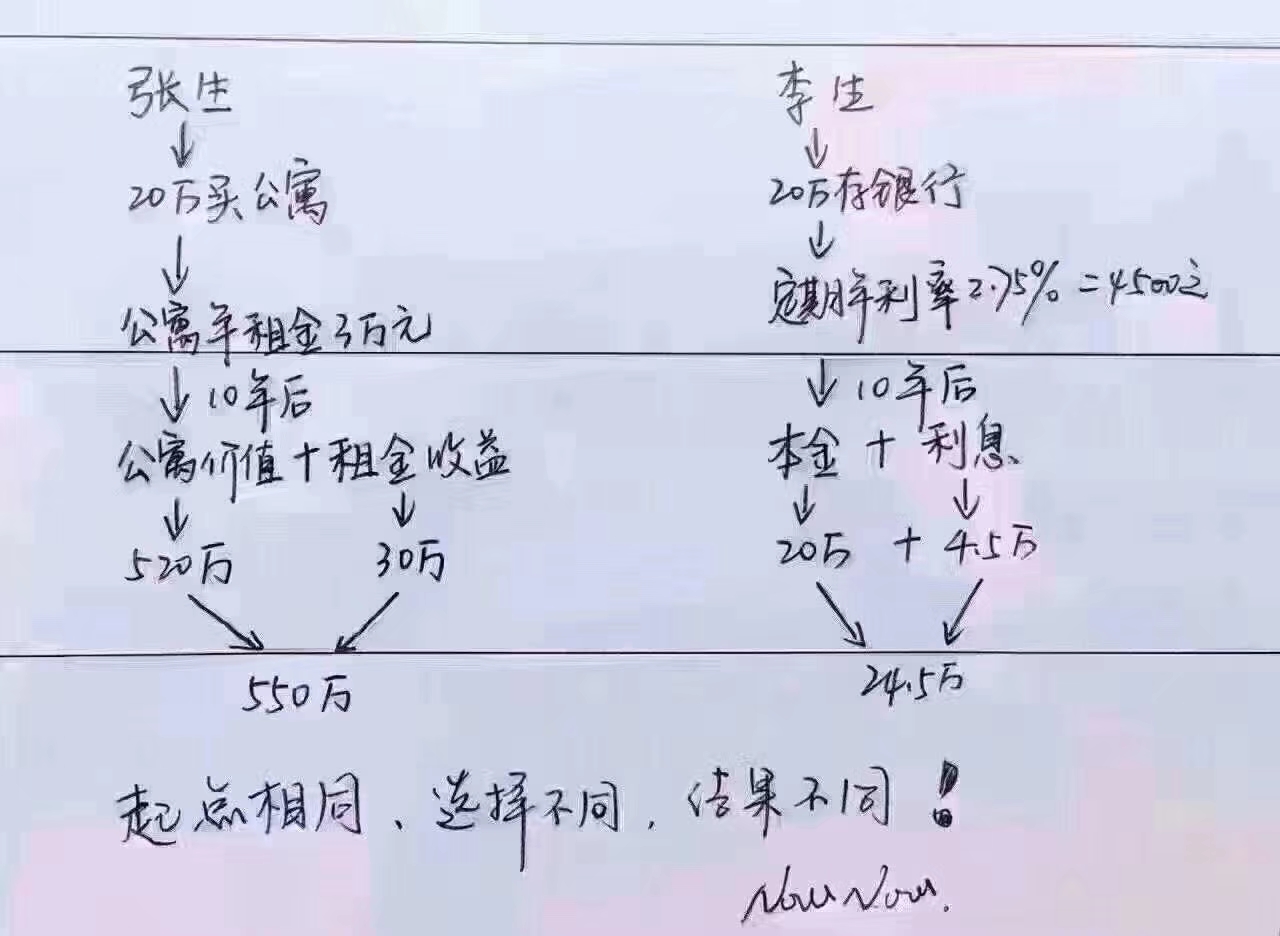 张生
↓
20万买公寓
↓
公寓年租金3万元
↓ 10年后
公寓价值+租金收益
↓ ↓
520万 30万
550万
李生
↓
20万存银行
↓
定期年利率2.75% = 4500元
↓ 10年后
本金 + 利息
↓ ↓
20万 + 4.5万
24.5万
起点相同、选择不同,结果不同!